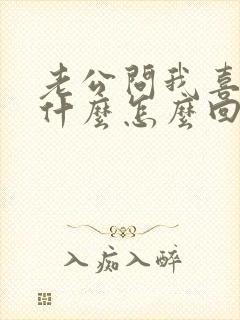 老公問我喜
什麼怎麼回
入痴入醉